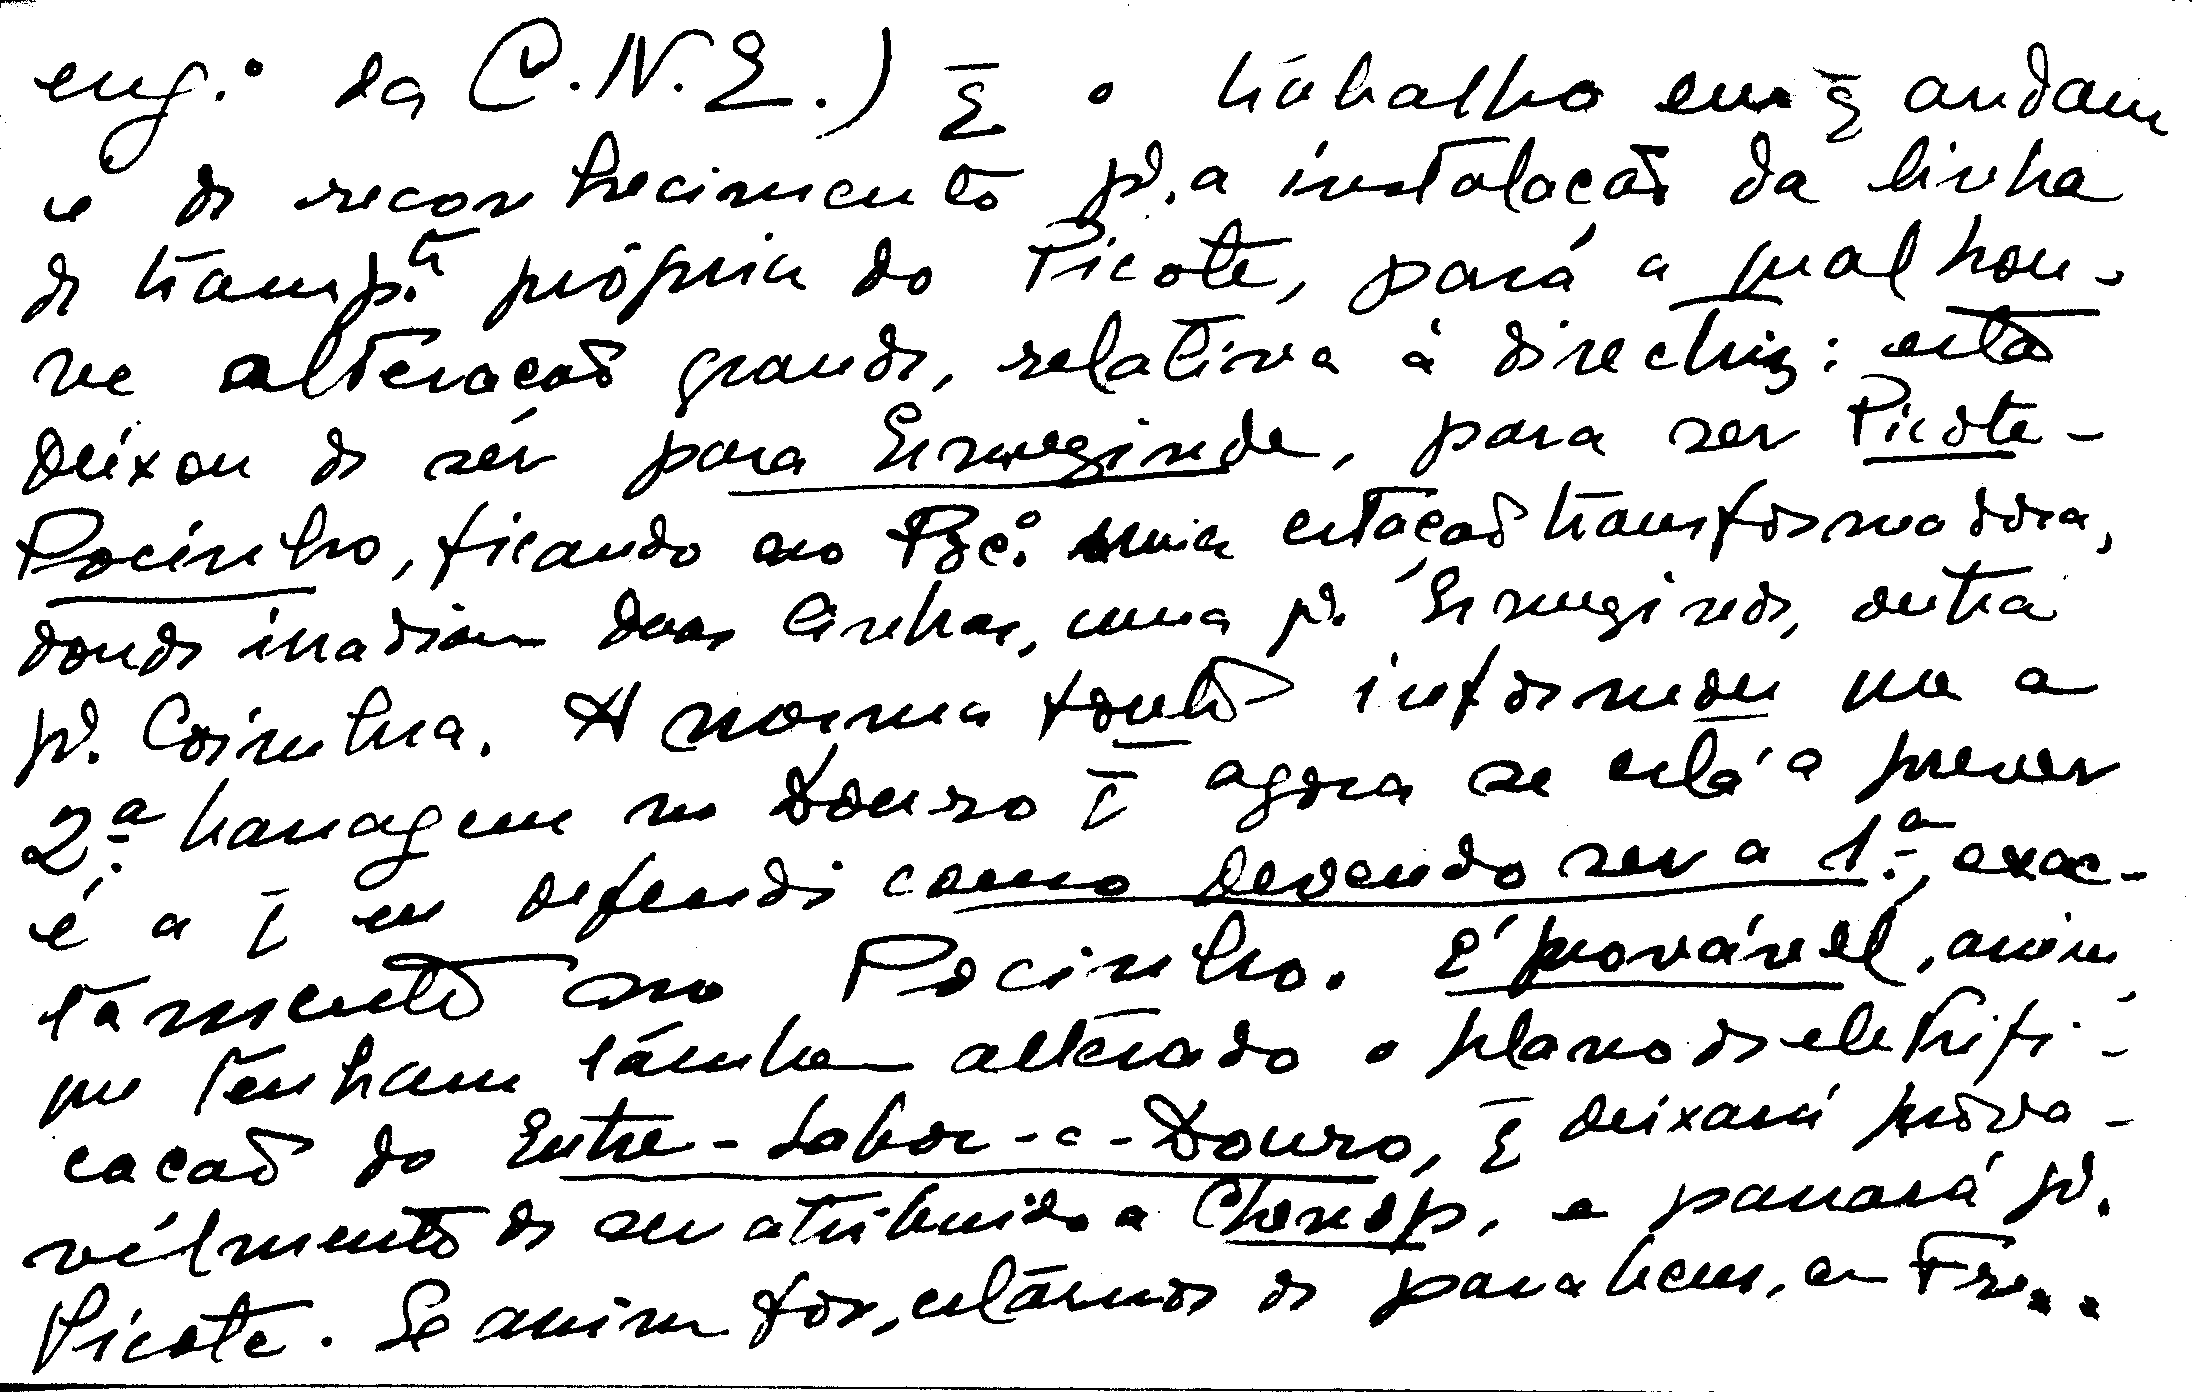 eng.º da C.N.E.) q̄ o trabalho em q̄ andam
é de reconhecimento p.ª a instalação da linha
de transp.te própria do Picote, pará a qual hou-
ve alteração grande, relativa à directriz: esta
deixou de sêr para Ermezinde, para ser Picote-
Pocinho, ficando no Pocº. uma estação transformadora,
donde irradiam duas linhas, uma p.ª Ermezinde, outra
p.ª Coimbra. A mesma fonte informou que a
2.ª barragem no Douro q̄ agora se está a prever
é a q̄ eu defendi como devendo ser a 1.ª, exac-
tamente no Pocinho. É provável, assim
que tenham támbem alterado o plano de eletrifi-
cacão do Entre-Sabor-e-Douro, q̄ deixará prová-
vélmente de ser atribuido a Chenop, e passará p.ª
Picote. Se assim for, estámos de parabens, e